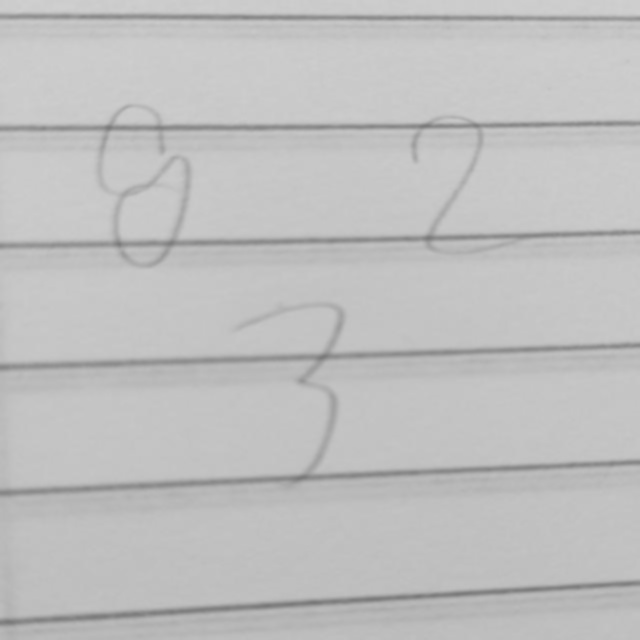 8 2
3